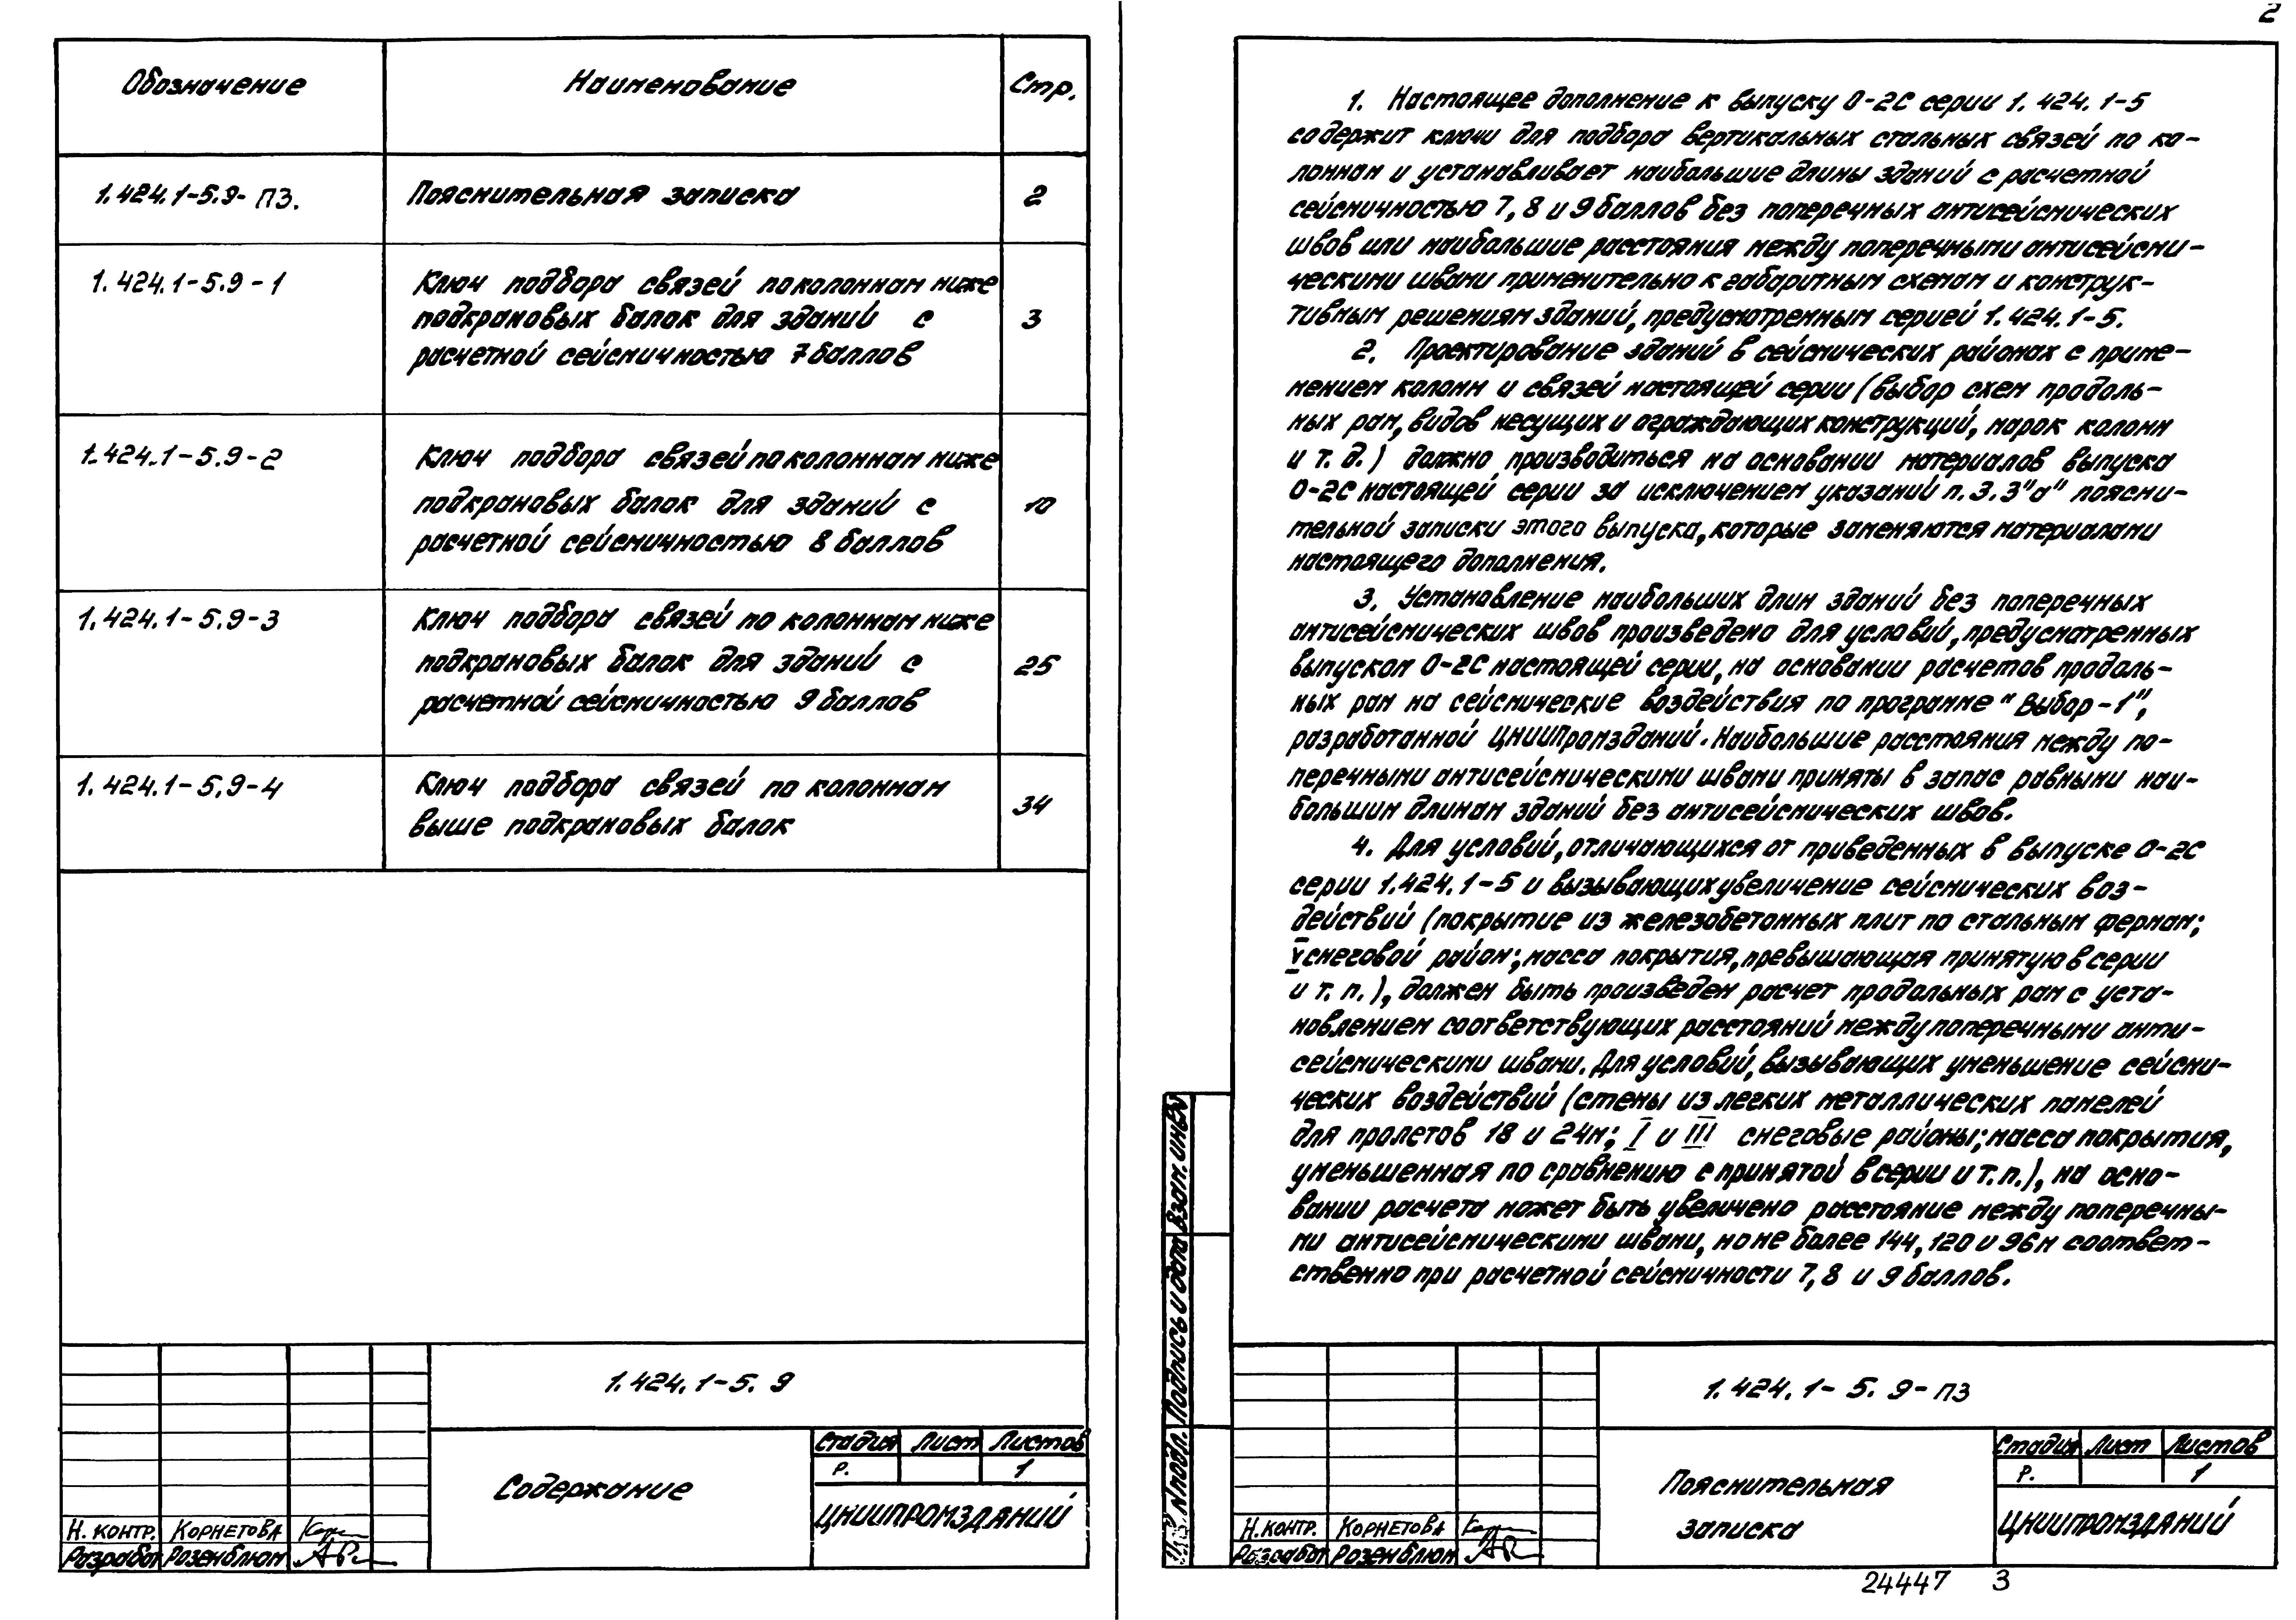 Обозначение Наименование Стр.
1.424.1-5.9-ПЗ. Пояснительная записка 2
1.424.1-5.9-1 Ключ подбора связей по колоннам ниже
подкрановых балок для зданий с 3
расчетной сейсмичностью 7 баллов
1.424.1-5.9-2 Ключ подбора связей по колоннам ниже
подкрановых балок для зданий с 10
расчетной сейсмичностью 8 баллов
1.424.1-5.9-3 Ключ подбора связей по колоннам ниже
подкрановых балок для зданий с 25
расчетной сейсмичностью 9 баллов
1.424.1-5.9-4 Ключ подбора связей по колоннам 34
выше подкрановых балок
1.424.1-5.9
Содержание
Стадия Лист Листов
Р. 1
ЦНИИПРОМЗДАНИЙ
Н. КОНТР. КОРНЕТОВА
Разработ Розенблюм
2
1. Настоящее дополнение к выпуску 0-2С серии 1.424.1-5
содержит ключи для подбора вертикальных стальных связей по ко-
лоннам и устанавливает наибольшие длины зданий с расчетной
сейсмичностью 7, 8 и 9 баллов без поперечных антисейсмических
швов или наибольшие расстояния между поперечными антисейсми-
ческими швами применительно к габаритным схемам и конструк-
тивным решениям зданий, предусмотренным серией 1.424.1-5.
2. Проектирование зданий в сейсмических районах с приме-
нением колонн и связей настоящей серии (выбор схем продоль-
ных рам, видов несущих и ограждающих конструкций, марок колонн
и т. д.) должно производиться на основании материалов выпуска
0-2С настоящей серии за исключением указаний п. 3.3"а" поясни-
тельной записки этого выпуска, которые заменяются материалами
настоящего дополнения.
3. Установление наибольших длин зданий без поперечных
антисейсмических швов произведено для условий, предусмотренных
выпуском 0-2С настоящей серии, на основании расчетов продоль-
ных рам на сейсмические воздействия по программе "Выбор-1",
разработанной ЦНИИПромзданий. Наибольшие расстояния между по-
перечными антисейсмическими швами приняты в запас равными наи-
большим длинам зданий без антисейсмических швов.
4. Для условий, отличающихся от приведенных в выпуске 0-2С
серии 1.424.1-5 и вызывающих увеличение сейсмических воз-
действий (покрытие из железобетонных плит по стальным фермам;
V снеговой район; масса покрытия, превышающая принятую в серии
и т. п.), должен быть произведен расчет продольных рам с уста-
новлением соответствующих расстояний между поперечными анти-
сейсмическими швами. Для условий, вызывающих уменьшение сейсми-
ческих воздействий (стены из легких металлических панелей
для пролетов 18 и 24м; I и III снеговые районы; масса покрытия,
уменьшенная по сравнению с принятой в серии и т. п.), на осно-
вании расчета может быть увеличено расстояние между поперечны-
ми антисейсмическими швами, но не более 144, 120 и 96м соответ-
ственно при расчетной сейсмичности 7, 8 и 9 баллов.
Взам. инв.
Подпись и дата
Инв. N подл.
1.424.1-5.9-ПЗ
Пояснительная
записка
Стадия Лист Листов
Р. 1
ЦНИИПРОМЗДАНИЙ
Н. КОНТР. КОРНЕТОВА
Разработ Розенблюм
24447 3